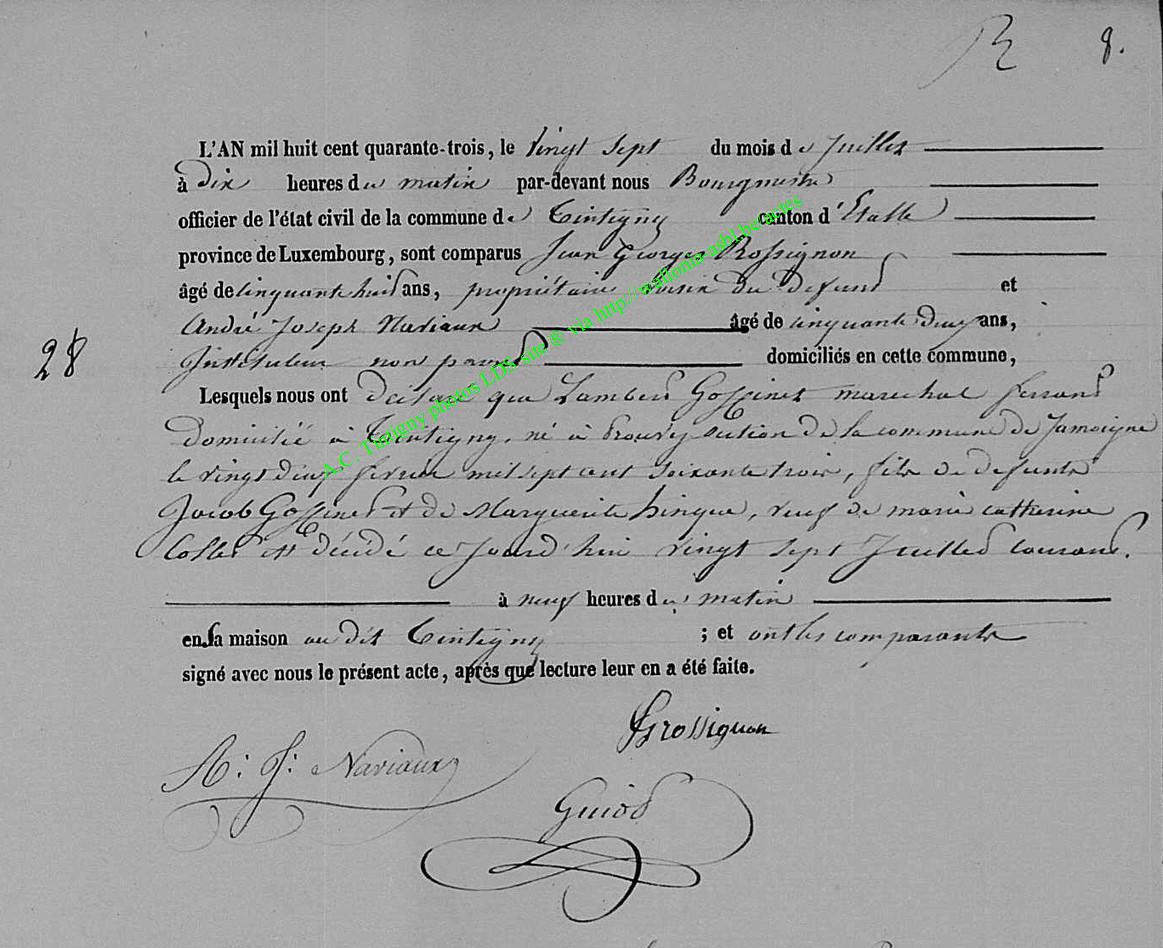 R 8.
L'AN mil huit cent quarante-trois, le vingt sept du mois de juillet
à dix heures du matin par-devant nous Bourgmestre
officier de l'état civil de la commune de Tintigny canton d'Etalle
province de Luxembourg, sont comparus Jean Georges Rossignon
âgé de cinquante huit ans, propriétaire voisin du defunt et
André Joseph Naviaux âgé de cinquante deux ans,
28
Instituteur non parent domiciliés en cette commune,
Lesquels nous ont déclaré que Lambert Goffinet marechal ferrant
domicilié à Tintigny, né à Prouvy section de la commune de Jamoigne
le vingt deux fevrier mil sept cent soixante trois, fils de defunts
Jacob Goffinet et de Marguerite hinque, veuf de marie catherine
est décédé ce jourd'hui vingt sept Juillet courant.
à neuf heures du matin
en sa maison au dit Tintigny ; et ont les comparants
signé avec nous le présent acte, après que lecture leur en a été faite.
JGrossignon
A: J: Naviaux
Guiot
A.C. Tintigny photos LDS, site @ via http://wallonia-asbl.be/actes